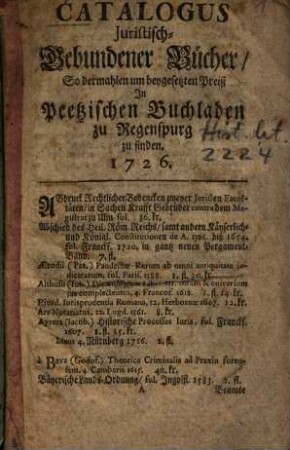 CATALOGUS
Juristisch-
Gebundener Bücher/
So dermahlen um beygesetzten Preiß
In
Peetzischen Buchladen
zu Regenspurg
zu finden.
1726.
Hist. lit.
2224
Abdruck Rechtlicher Bedencken zweyer Juristen Facul-
täten/ in Sachen Krafft Gebrüder contra dem Ma-
gistrat zu Ulm fol. 36. kr.
Abschied des Heil. Röm Reichs/ samt andern Käyserlich-
und Königl. Constitutionen de A. bis 1654.
fol. Franckf. 1720. in gantz neuen Pergament-
Band. 7. fl.
Ærodii (Pet.) Pandectæ Rerum ab omni antiquitate ju-
dicatarum, fol. Paris. 1588. 2. fl. 30. kr.
Althusii (Joh.) totam & universam
jus complectentes, 4. Francof 1618. 2. fl. 15. kr.
Ejusd. Jurisprudentia Romana, 12. Herbornæ 1607. 12. kr.
Ars Notariatus, 12. Lugd. 1561. 8. kr.
Ayrers (Jacob.) Historische Processus Juris, fol. Franckf.
1607. 1. fl. 15. kr.
Idem 4. Nürnberg 1716. 2. fl.
à Bavo (Godof.) Theorica Criminalis ad Praxin foren-
sem, 4. Camberii 1615. 40. kr.
Bäyerische Lands-Ordnung/ fol. Ingolst. 1583. 2. fl.
A
Beamte